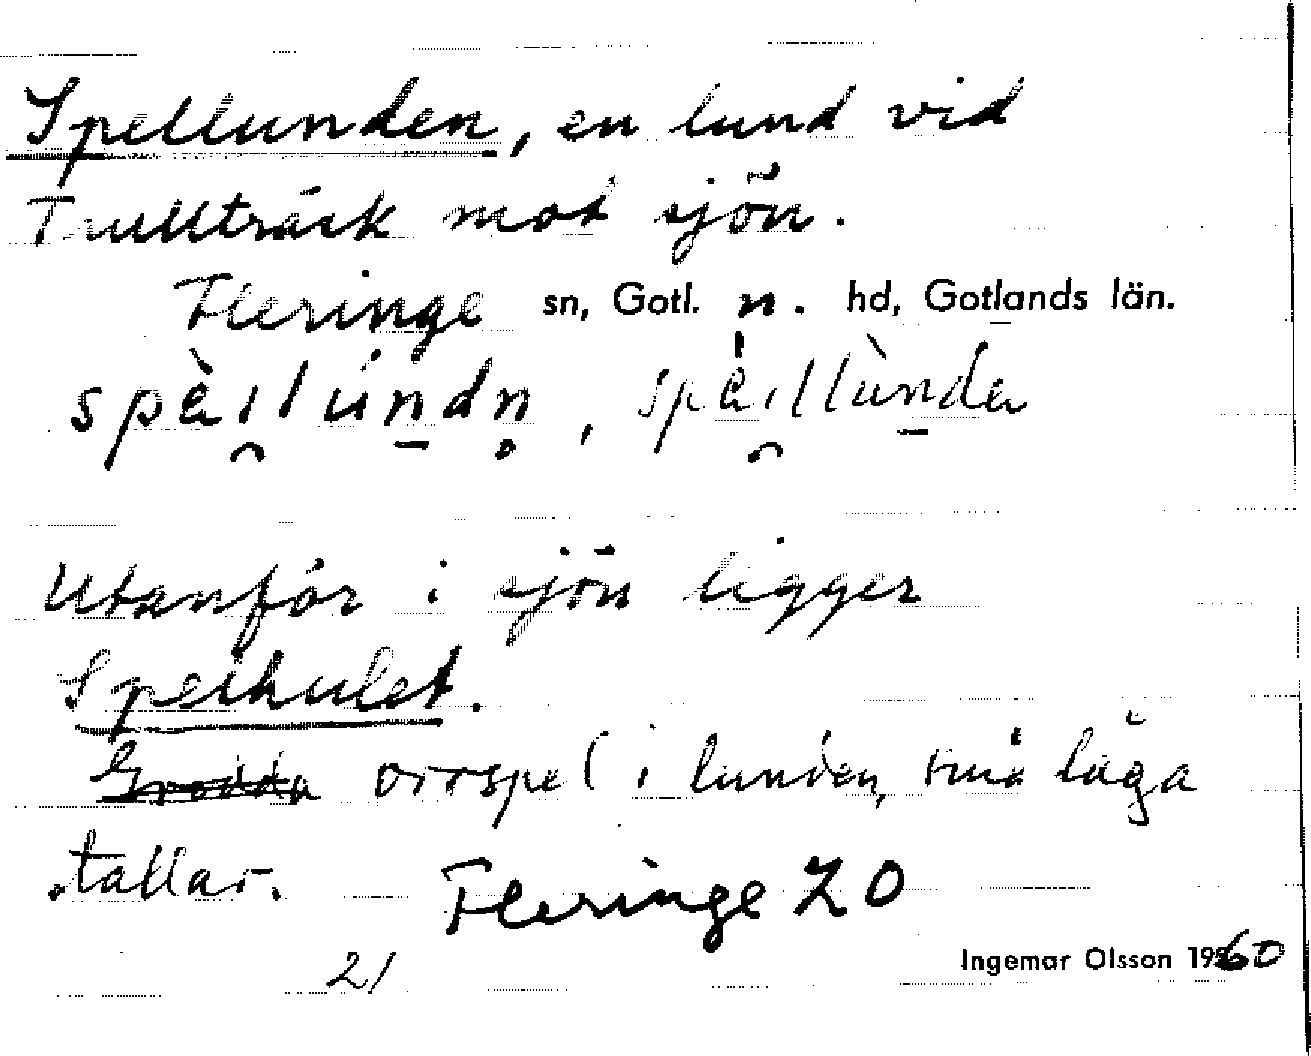 Spellunden, en lund vid
Trullträsk mot sjön.
Fleringe sn, Gotl. n. hd, Gotlands län.
spèi̯llúnd̥n, spèi̯llùnda
Utanför i sjön ligger
Spelhulet.
orrspel i lunden, små låga
tallar. Fleringe 20
21 Ingemar Olsson 1960